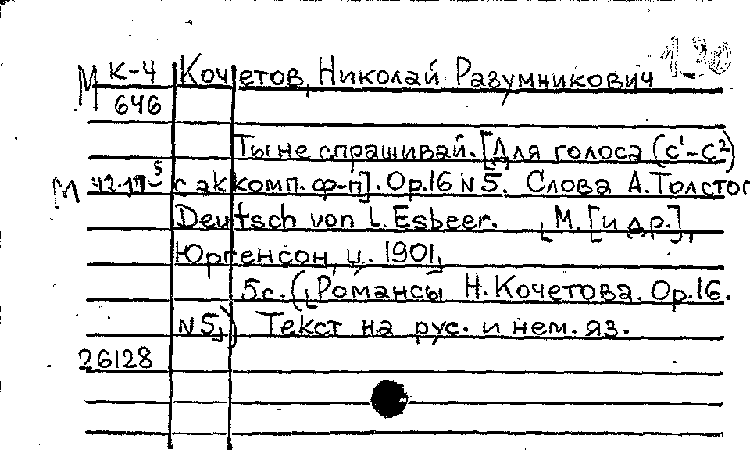 1-20
М К-4 Кочетов, Николай Разумникович
646
Ты не спрашивай. [Для голоса (c¹-c²)
М 42.17-5 с аккомп. ф-п]. Op.16 N5. Слова А.Толстог
Deutsch von L. Esbeer. [М. [и др.],
Юргенсон, ц. 1901,
5с. ([Романсы Н.Кочетова. Op.16.
N5]) Текст на рус. и нем. яз.
26128